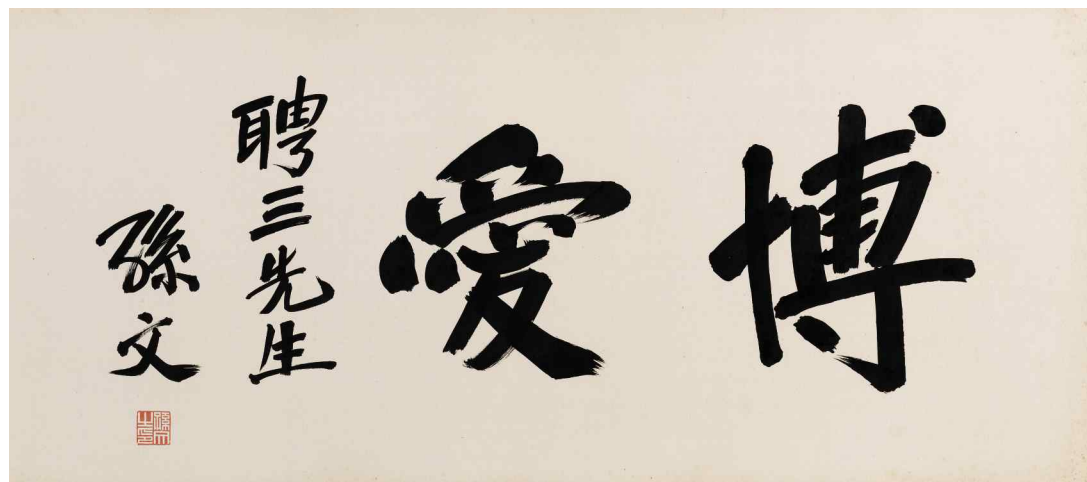 博愛
聘三先生
孫文
孫文之印